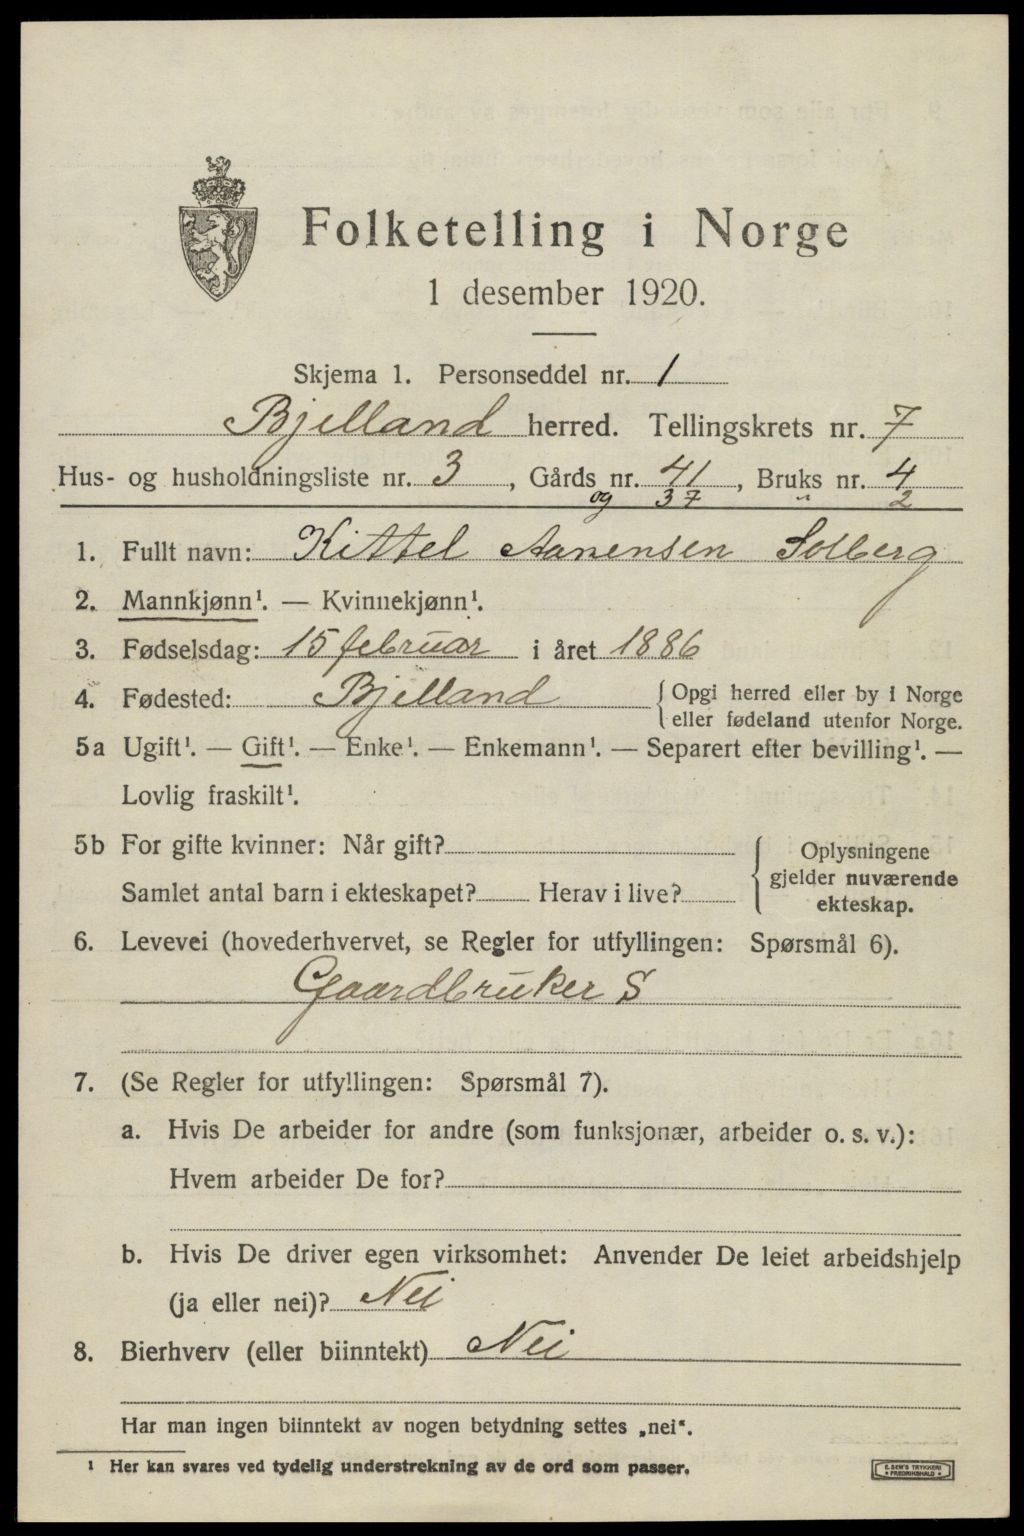 Folketelling i Norge
1 desember 1920.
Skjema 1. Personseddel nr. 1
Bjelland herred. Tellingskrets nr. 7
Hus- og husholdningsliste nr. 3, Gårds nr. 41, Bruks nr. 4
og 37 " 2
1. Fullt navn: Kittel Aanensen Solberg
2. Mannkjønn¹. — Kvinnekjønn¹.
3. Fødselsdag: 15 februar i året 1886
4. Fødested: Bjelland { Opgi herred eller by i Norge
eller fødeland utenfor Norge.
5a Ugift¹. — Gift¹. — Enke¹. — Enkemann¹. — Separert efter bevilling¹. —
Lovlig fraskilt¹.
5b For gifte kvinner: Når gift? { Oplysningene
gjelder nuværende
Samlet antal barn i ekteskapet? Herav i live?
ekteskap.
6. Levevei (hovederhvervet, se Regler for utfyllingen: Spørsmål 6).
Gaardbruker S
7. (Se Regler for utfyllingen: Spørsmål 7).
a. Hvis De arbeider for andre (som funksjonær, arbeider o. s. v.):
Hvem arbeider De for?
b. Hvis De driver egen virksomhet: Anvender De leiet arbeidshjelp
(ja eller nei)? Nei
8. Bierhverv (eller biinntekt) Nei
Har man ingen biinntekt av nogen betydning settes „nei“.
¹ Her kan svares ved tydelig understrekning av de ord som passer.
E. SEM'S TRYKKERI
• FREDRIKSHALD •